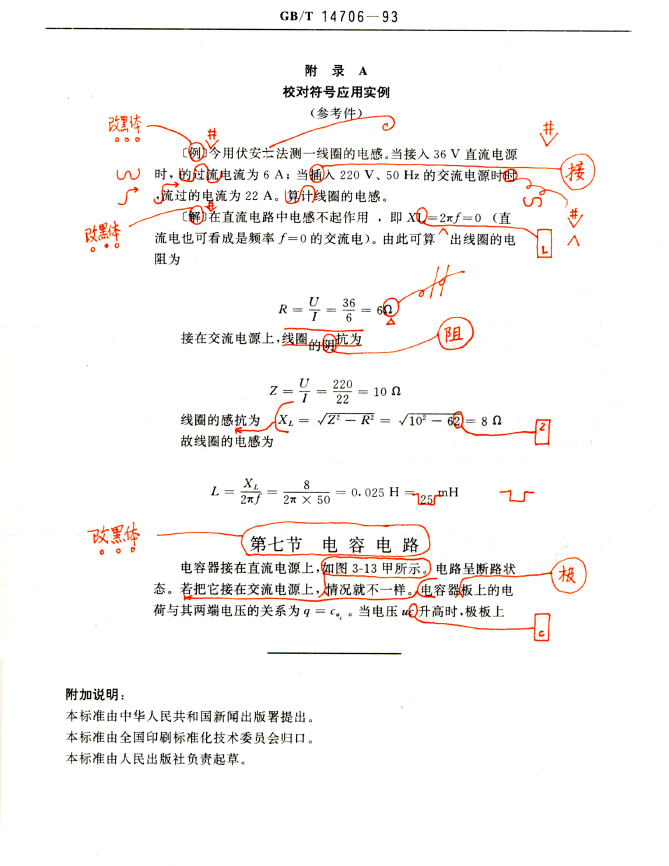 GB/T 14706—93
附 录 A
校对符号应用实例
(参考件)
改黑体
#
#
〔例〕今用伏安法测一线圈的电感。当接入 36 V 直流电源
时，的过流电流为 6 A；当插入 220 V、50 Hz 的交流电源时时
接
，流过的电流为 22 A。算计线圈的电感。
改黑体
〔解〕在直流电路中电感不起作用 ，即 XL=2πf=0 （直
#
流电也可看成是频率 f=0 的交流电）。由此可算 出线圈的电
L
阻为
R = U/I = 36/6 = 6Ω
接在交流电源上，线圈的阴抗为
阻
Z = U/I = 220/22 = 10 Ω
线圈的感抗为 X_L = √(Z² − R²) = √(10² − 62) = 8 Ω
2
故线圈的电感为
L = X_L/2πf = 8/(2π × 50) = 0.025 H = 25 mH
改黑体
第七节 电 容 电 路
电容器接在直流电源上，如图 3-13 甲所示。电路呈断路状
态。若把它接在交流电源上，情况就不一样。电容器板上的电
极
荷与其两端电压的关系为 q = c 。当电压 uc升高时，极板上
c
附加说明：
本标准由中华人民共和国新闻出版署提出。
本标准由全国印刷标准化技术委员会归口。
本标准由人民出版社负责起草。